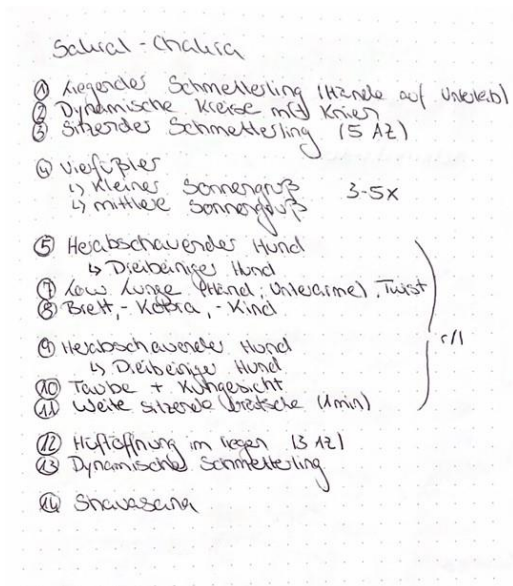 Sakral - Chakra
① Liegender Schmetterling (Hände auf Unterleib)
② Dynamische Kreise mit Knien
③ Sitzender Schmetterling (5 AZ)
④ Vierfüßler
↳ kleiner Sonnengruß 3-5x
↳ mittlere Sonnengruß
⑤ Herabschauender Hund
↳ Dreibeiniger Hund
⑦ Low Lunge (Händ; Unterarme), Twist
⑧ Brett, - Kobra, - Kind
⑨ Herabschauender Hund
↳ Dreibeiniger Hund
r/l
⑩ Taube + Kuhgesicht
⑪ Weite sitzende Grätsche (1min)
⑫ Hüftöffnung im liegen (3 AZ)
⑬ Dynamische Schmetterling
⑭ Shavasana